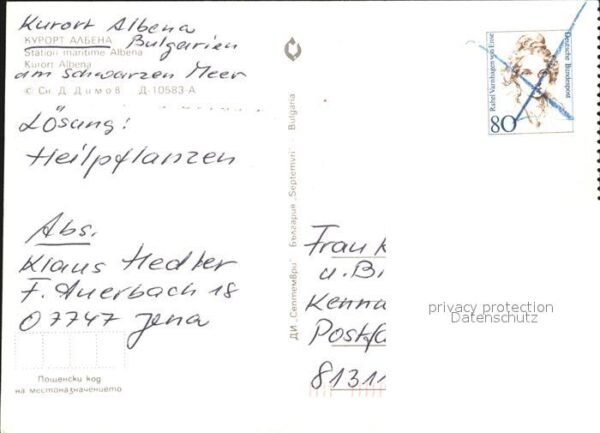 Kurort Albena
КУРОРТ АЛБЕНА Bulgarien
Station maritime Albena
Kurort Albena
am Schwarzen Meer
© Сн. Д. Димов Д-10583-А
Lösung:
Heilpflanzen
Abs.
Klaus Hedler
F. Auerbach 18
07747 Jena
Пощенски код
на местоназначението
ДИ „Септември" България „Septemvri" Bulgaria
Rahel Varnhagen von Ense
Deutsche Bundespost
80
Frau K
u. Bi
Kenn
Postfa
81311
privacy protection
Datenschutz